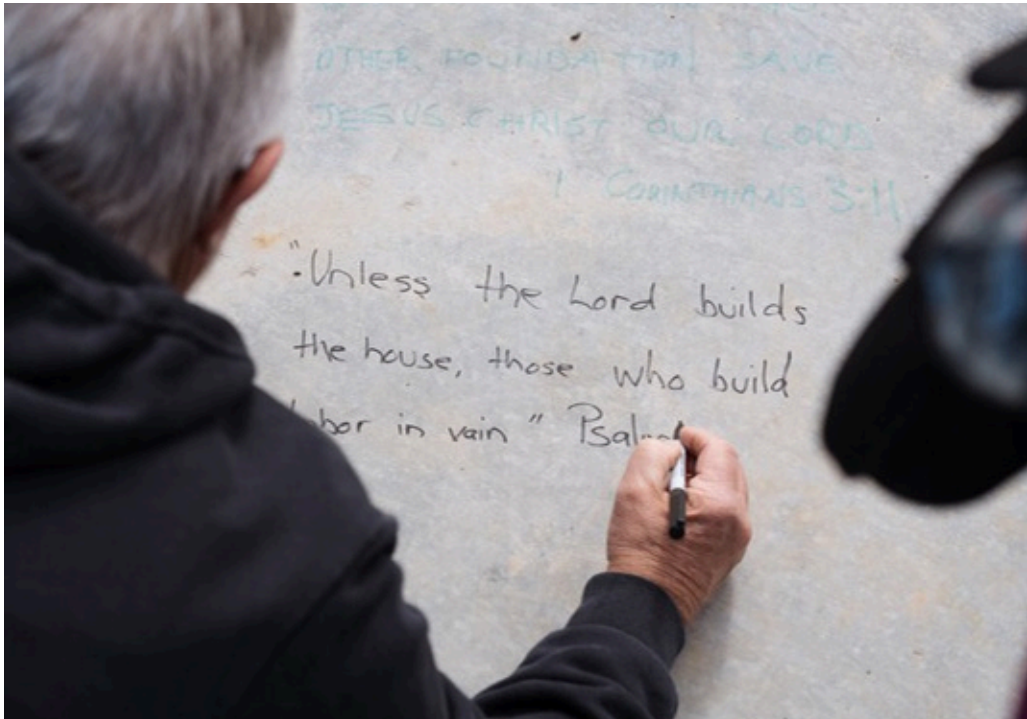 OTHER FOUNDATION SAVE
JESUS CHRIST OUR LORD
1 CORINTHIANS 3:11
"Unless the Lord builds
the house, those who build
labor in vain" Psalm